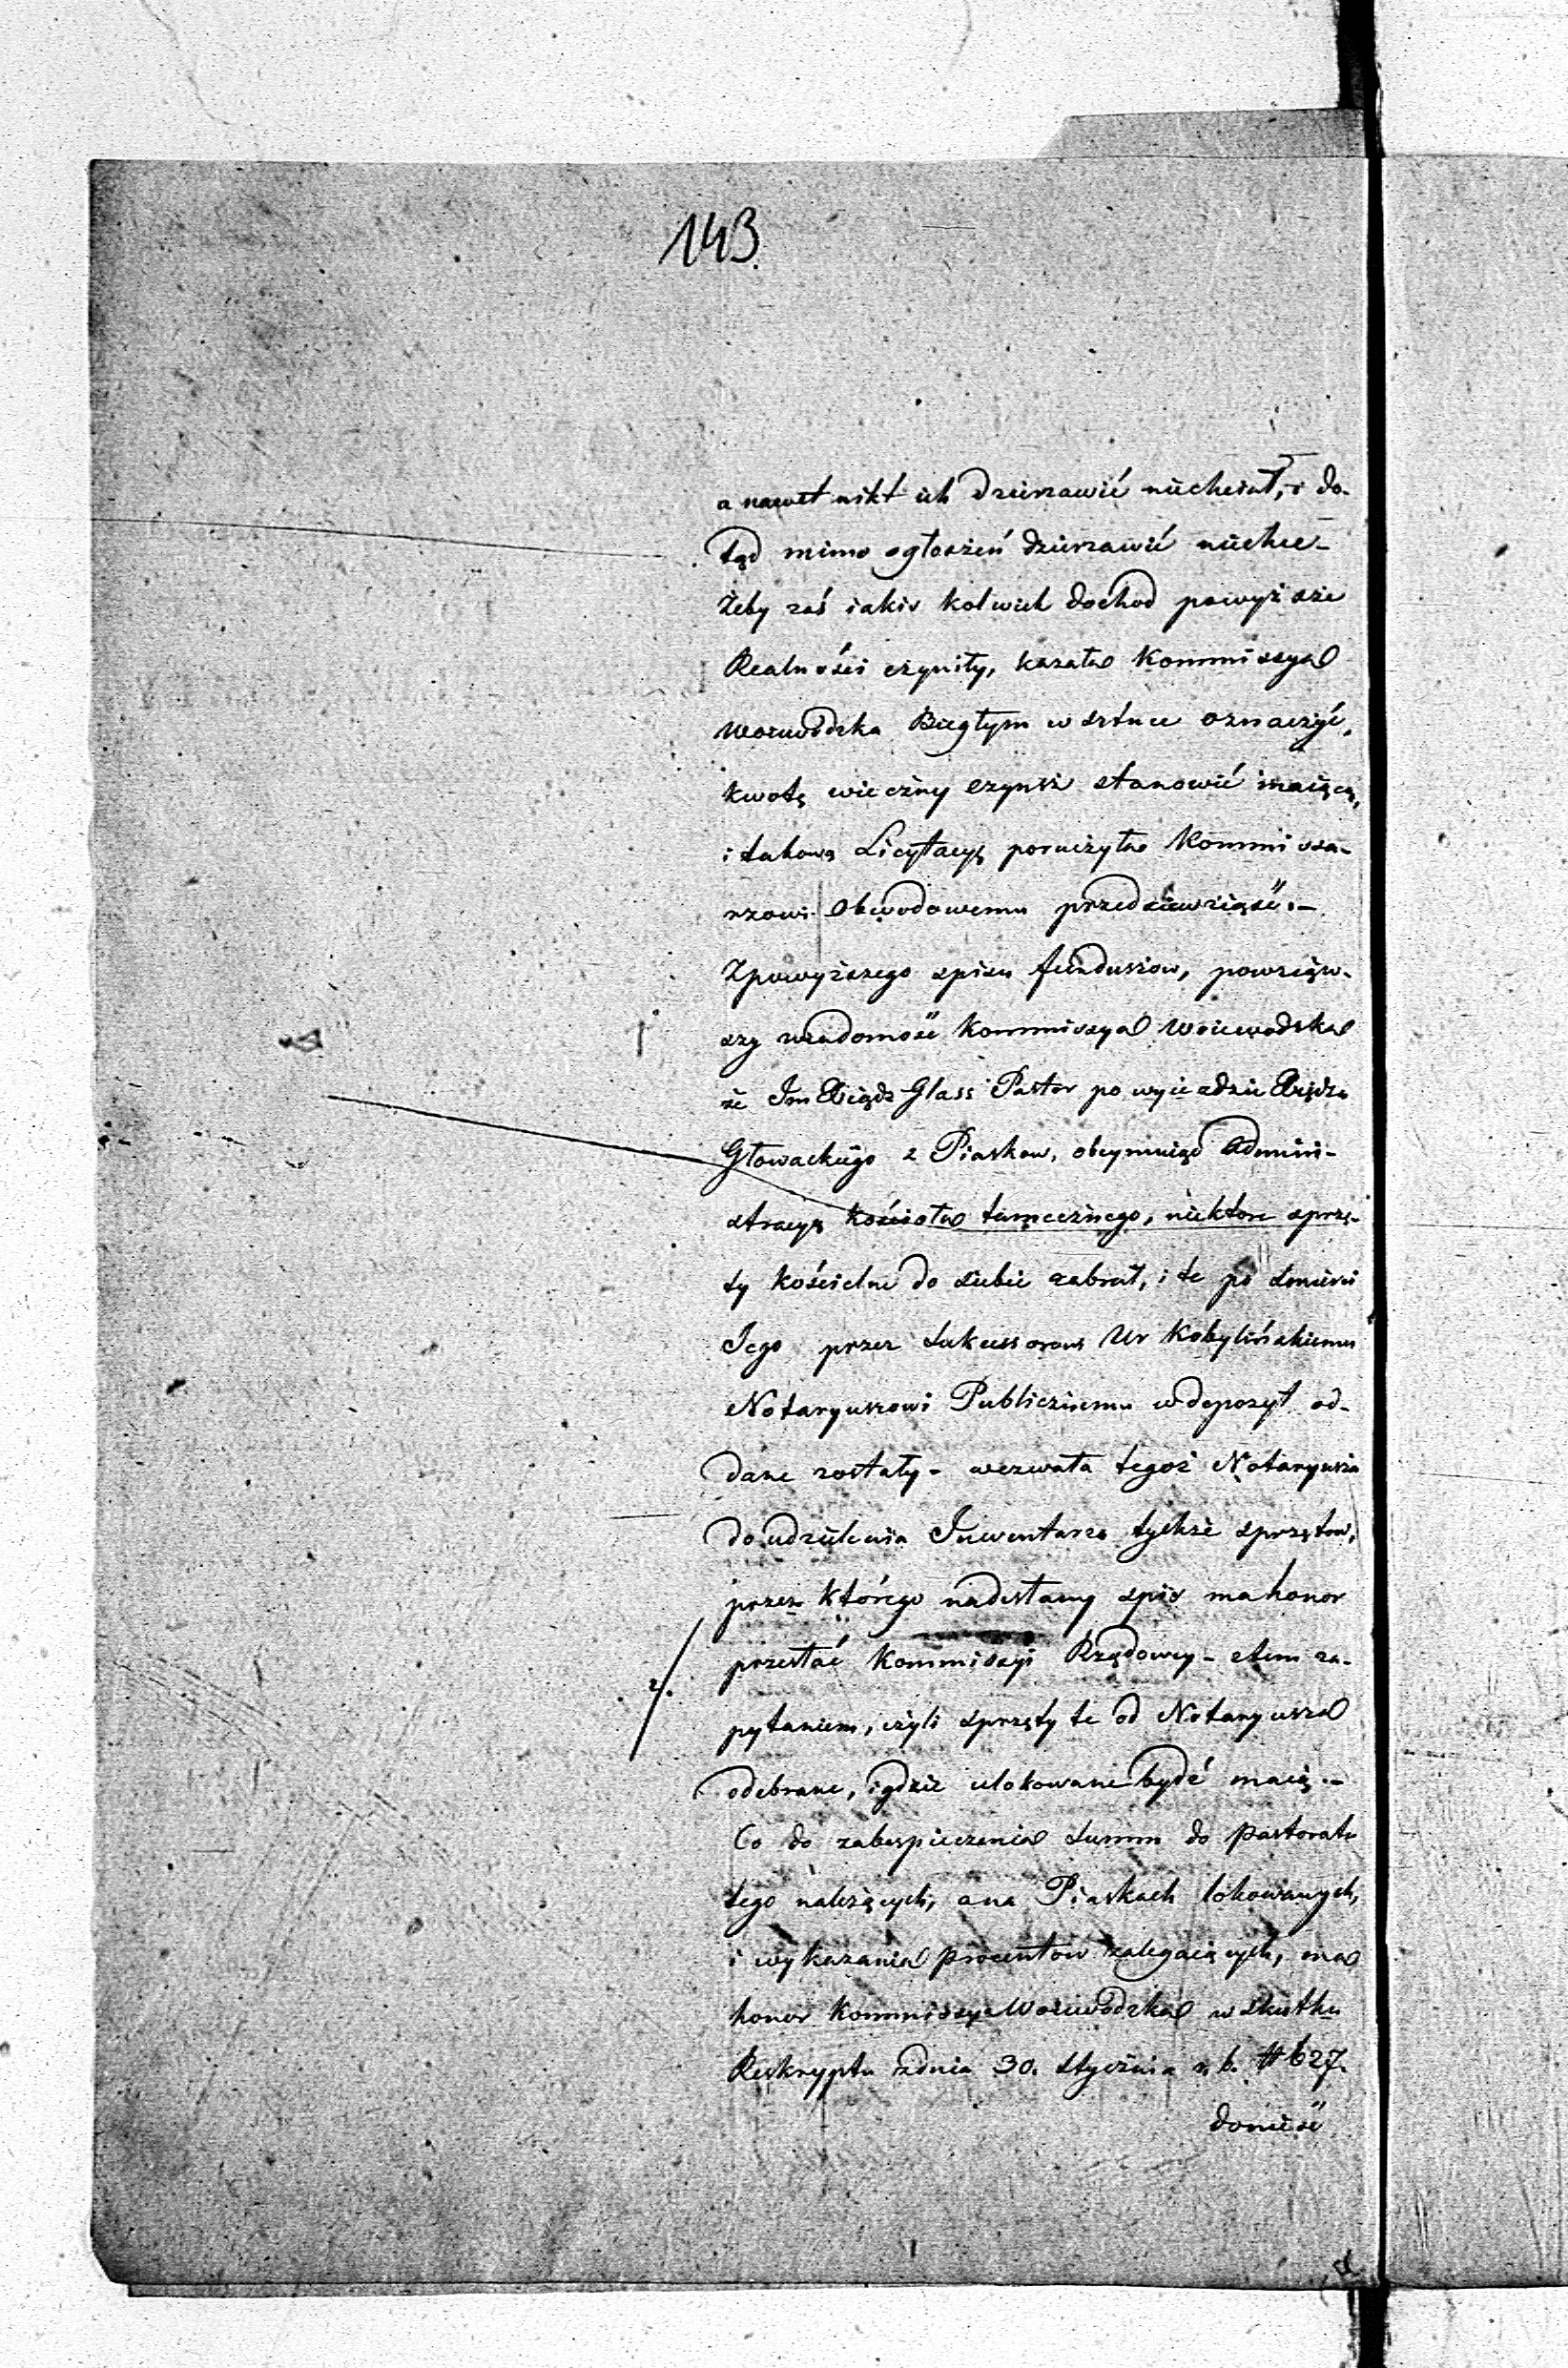 143.
a nawet nikt ich dzierzawić niechciał, i do-
tąd mimo ogłoszeń dzierzawić niechce-
Żeby zaś iakiś kolwiek dochod powyższe
Realności czyniły, kazała Kommissya
Woiewódzka Biegłym w sztuce oznaczyć,
kwotę wieczny czynsz stanowić maiącą,
i takową Licytacyę poruczyła Kommissa-
rzowi Obwodowemu przedsiewziąść.-
Zpowyższego spisu funduszow, powziąw-
szy wiadomość Kommissya Woiewodzka
że Im Xiądz Glass Pastor po wyieździe Xiędza
Głowackiego z Piaskow, obeymuiąc Admini-
stracyę kościoła tamecznego, niektore sprzę-
ty kościelne do siebie zabrał, i te po śmierci
Jego przez Sukcessorow Ur Kobylińskiemu
Notaryuszowi Publicznemu w depozyt od-
dane zostały- wezwała tegoż Notaryusza
do udzielenia Inwentarza tychże sprzętow,
przez którego nadesłany spis ma honor
przesłać Kommissyi Rządowey- ztem za-
2/.
pytaniem, czyli sprzęty te od Notaryusza
odebrane, i gdzie ulokowane bydź maią.-
Co do zabespieczenia Summ do Pastoratu
tego należących, a na Piaskach lokowanych,
i wykazania procentow zalegaiących, ma
honor Kommissya Woiewódzka w skutku
Reskryptu zdnia 30. Stycznia r. b. # 627.
donieść